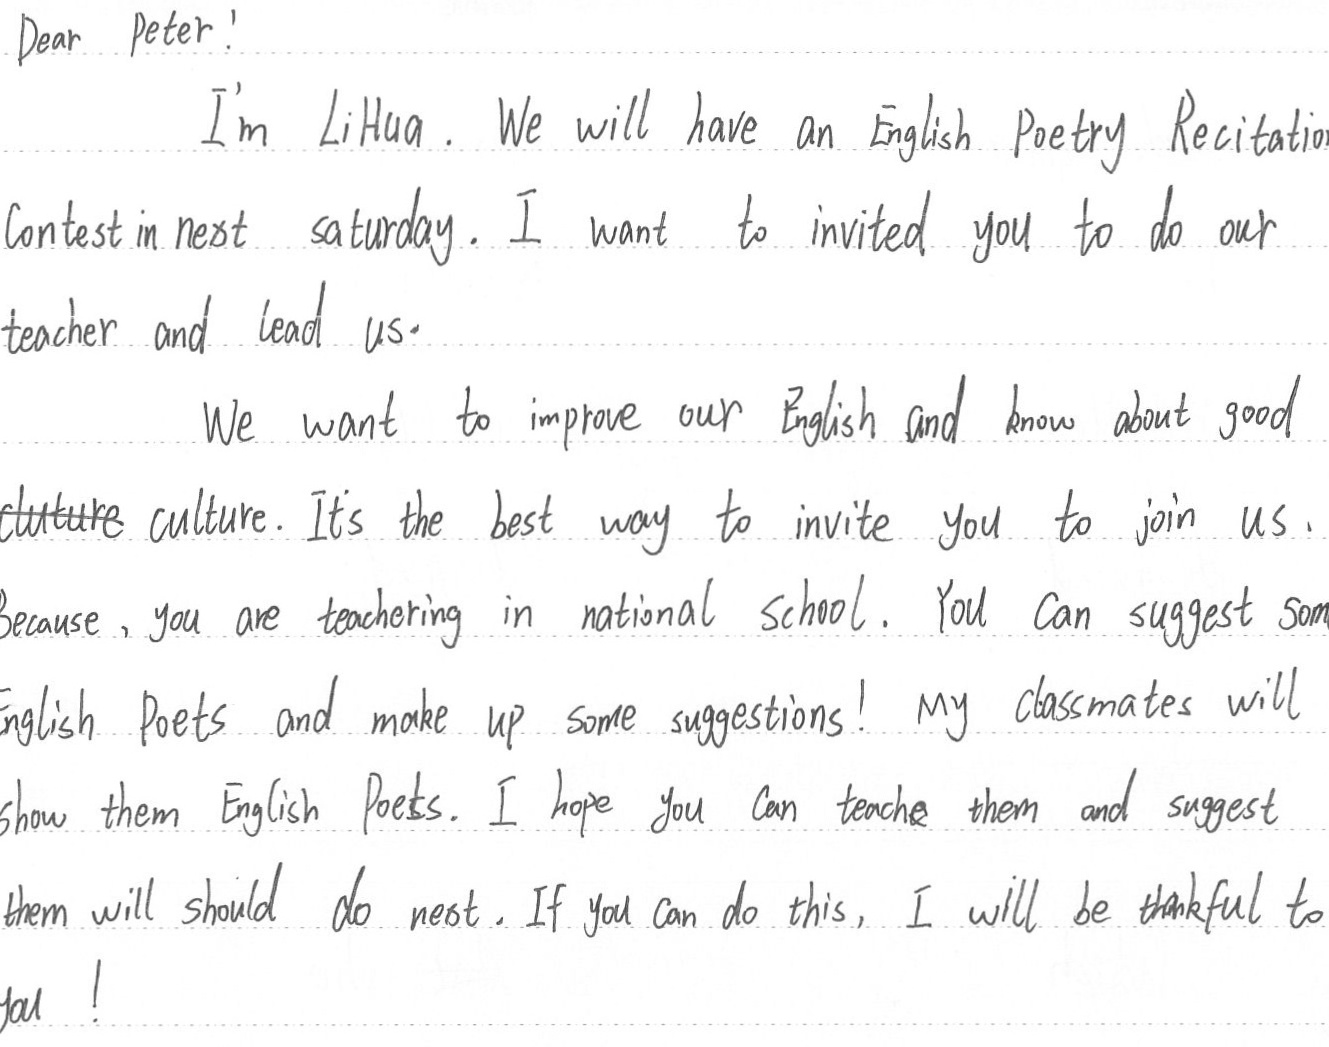 Dear Peter!
I'm LiHua. We will have an English Poetry Recitation
Contest in next saturday. I want to invited you to do our
teacher and lead us.
We want to improve our English and know about good
cluture culture. It's the best way to invite you to join us.
Because, you are teachering in national school. You can suggest som
English Poets and make up some suggestions! My classmates will
show them English Poets. I hope you can teache them and suggest
them will should do next. If you can do this, I will be thankful to
you!